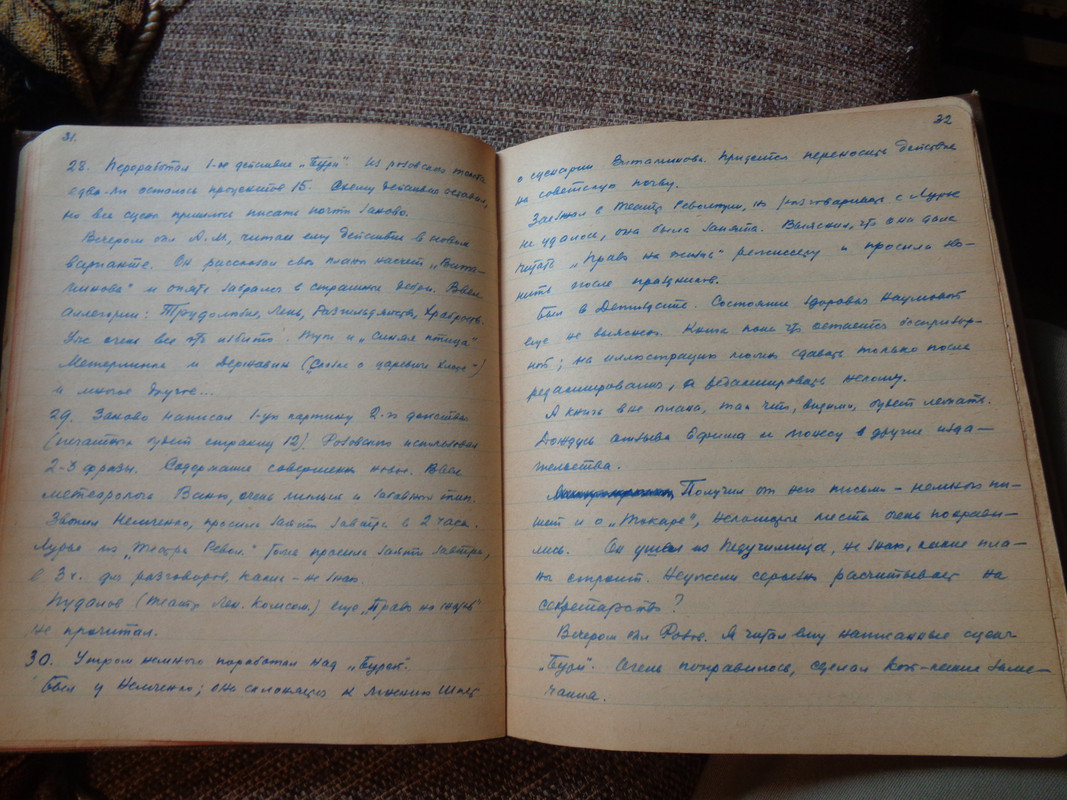 31.
28. Переработал 1-ое действие „Бури". Из розовского текста
едва-ли осталось процентов 15. Схему действия оставил,
но все сцены пришлось писать почти заново.
Вечером был А.М, читал ему действие в новом
варианте. Он рассказал свои планы насчет „Вита-
линова" и опять забрался в страшные дебри. Ввел
аллегории: Трудолюбие, Лень, Разгильдяйство, Храбрость.
Уже очень все это избито. Тут и „Синяя птица"
Метерлинка и Державин (Сказка о царевиче Хлоре")
и многое другое...
29. Заново написал 1-ую картину 2-го действия
(печатных будет страниц 12). Розовского использовал
2-3 фразы. Содержание совершенно новое. Ввел
метеоролога Ваню, очень милый и забавный тип.
Звонил Немченко, просила зайти завтра в 2 часа.
Лурье из „Театра Револ." тоже просила зайти завтра,
в 3 ч. для разговоров, каких - не знаю.
Пудалов (Театр Лен. Комсом.) еще „Право на жизнь"
не прочитал.
30. Утром немного поработал над „Бурей".
Был у Немченко; она склоняется к мнению
32
о сценарии Виталинова. Придется переносить действие
на советскую почву.
Заезжал в театр Революции, но разговаривать с Лурье
не удалось, она была занята. Выяснил, что она дала
читать „Право на жизнь" режиссеру и просила зво-
нить после праздников.
Был в Детиздате. Состояние здоровья Наумовой
еще не выяснено. Книга пока что остается беспризор-
ной; на иллюстрацию можно сдавать только после
редактирования, а редактировать некому.
А книга вне плана, так что, видимо, будет лежать.
Дождусь отзыва Ефима и понесу в другие изда-
тельства.
Получил от него письмо - немного пи-
шет и о „Токаре", некоторые места очень понрави-
лись. Он ушел из Педучилища, не знаю, какие пла-
ны строит. Неужели серьезно расчитывает на
секретарство?
Вечером был Розов. Я читал ему написанные сцены
„Бури". Очень понравилось, сделал кое-какие заме-
чания.